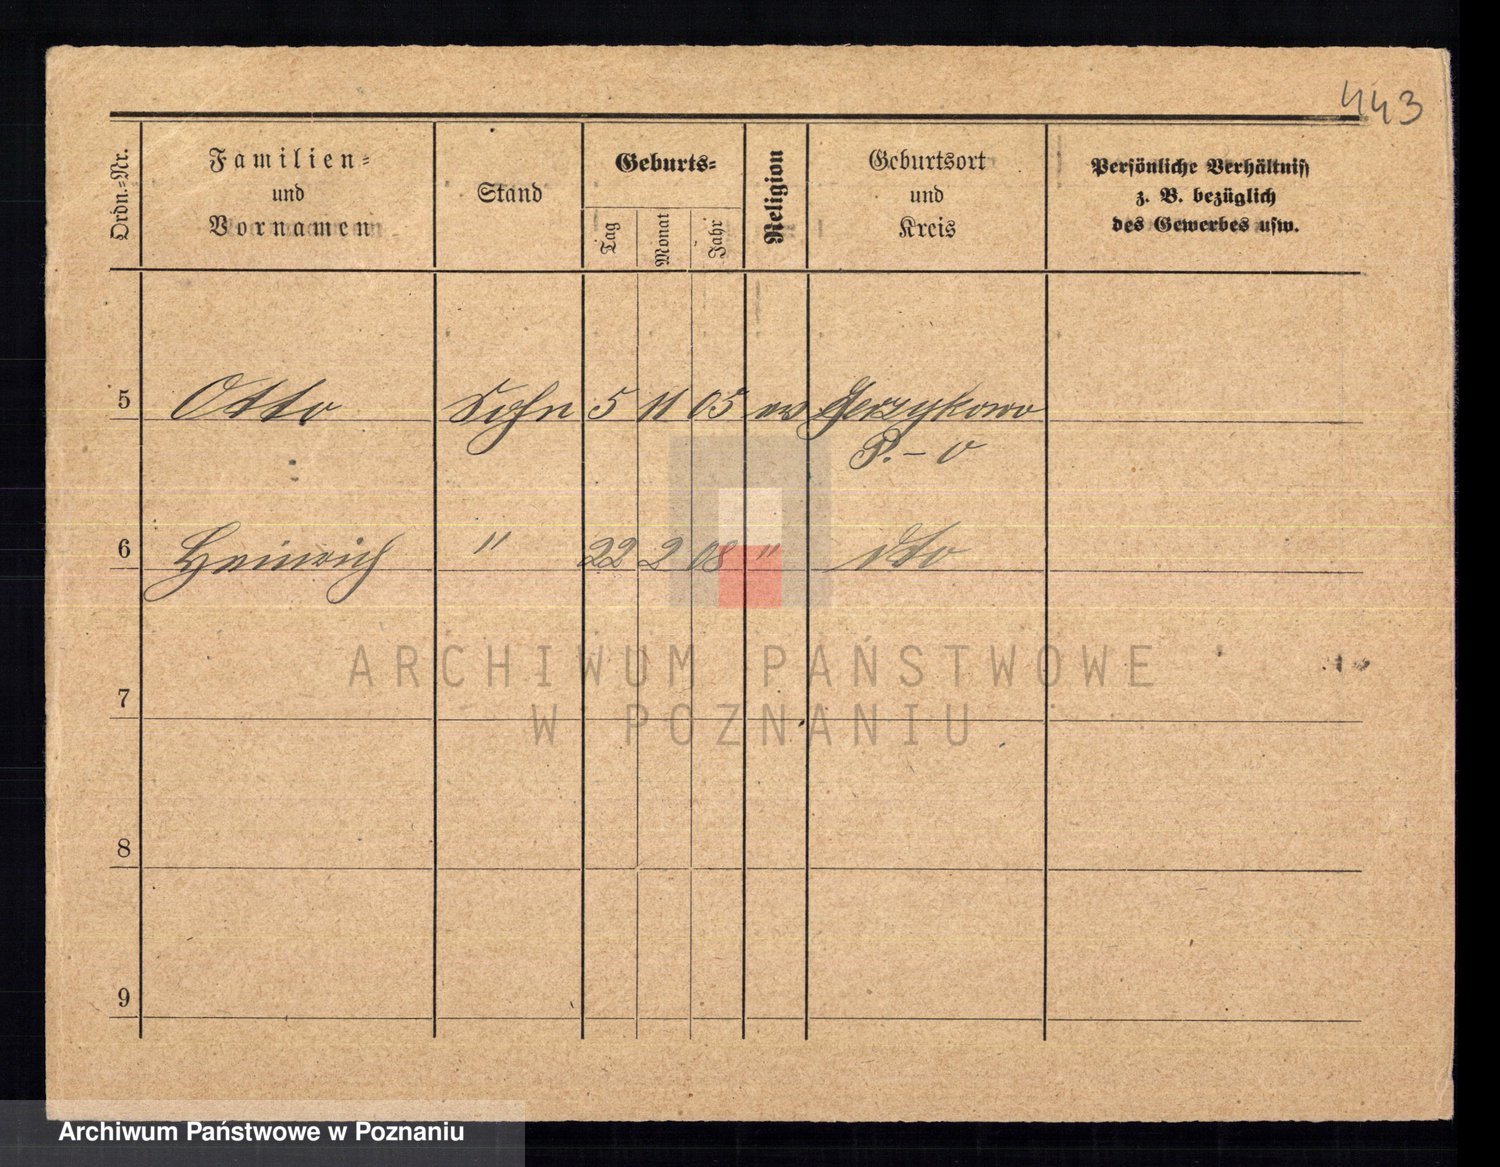 443
Ordn.-Nr.
Familien-
und
Vornamen
Stand
Geburts-
Tag
Monat
Jahr
Religion
Geburtsort
und
Kreis
Persönliche Verhältniss
z. B. bezüglich
des Gewerbes usw.
5 Otto Sohn 5 11 05 ev Gerzykowo
P. – O
6 Heinrich " 22 2 08 " dto
7
8
9
ARCHIWUM PAŃSTWOWE
W POZNANIU
Archiwum Państwowe w Poznaniu